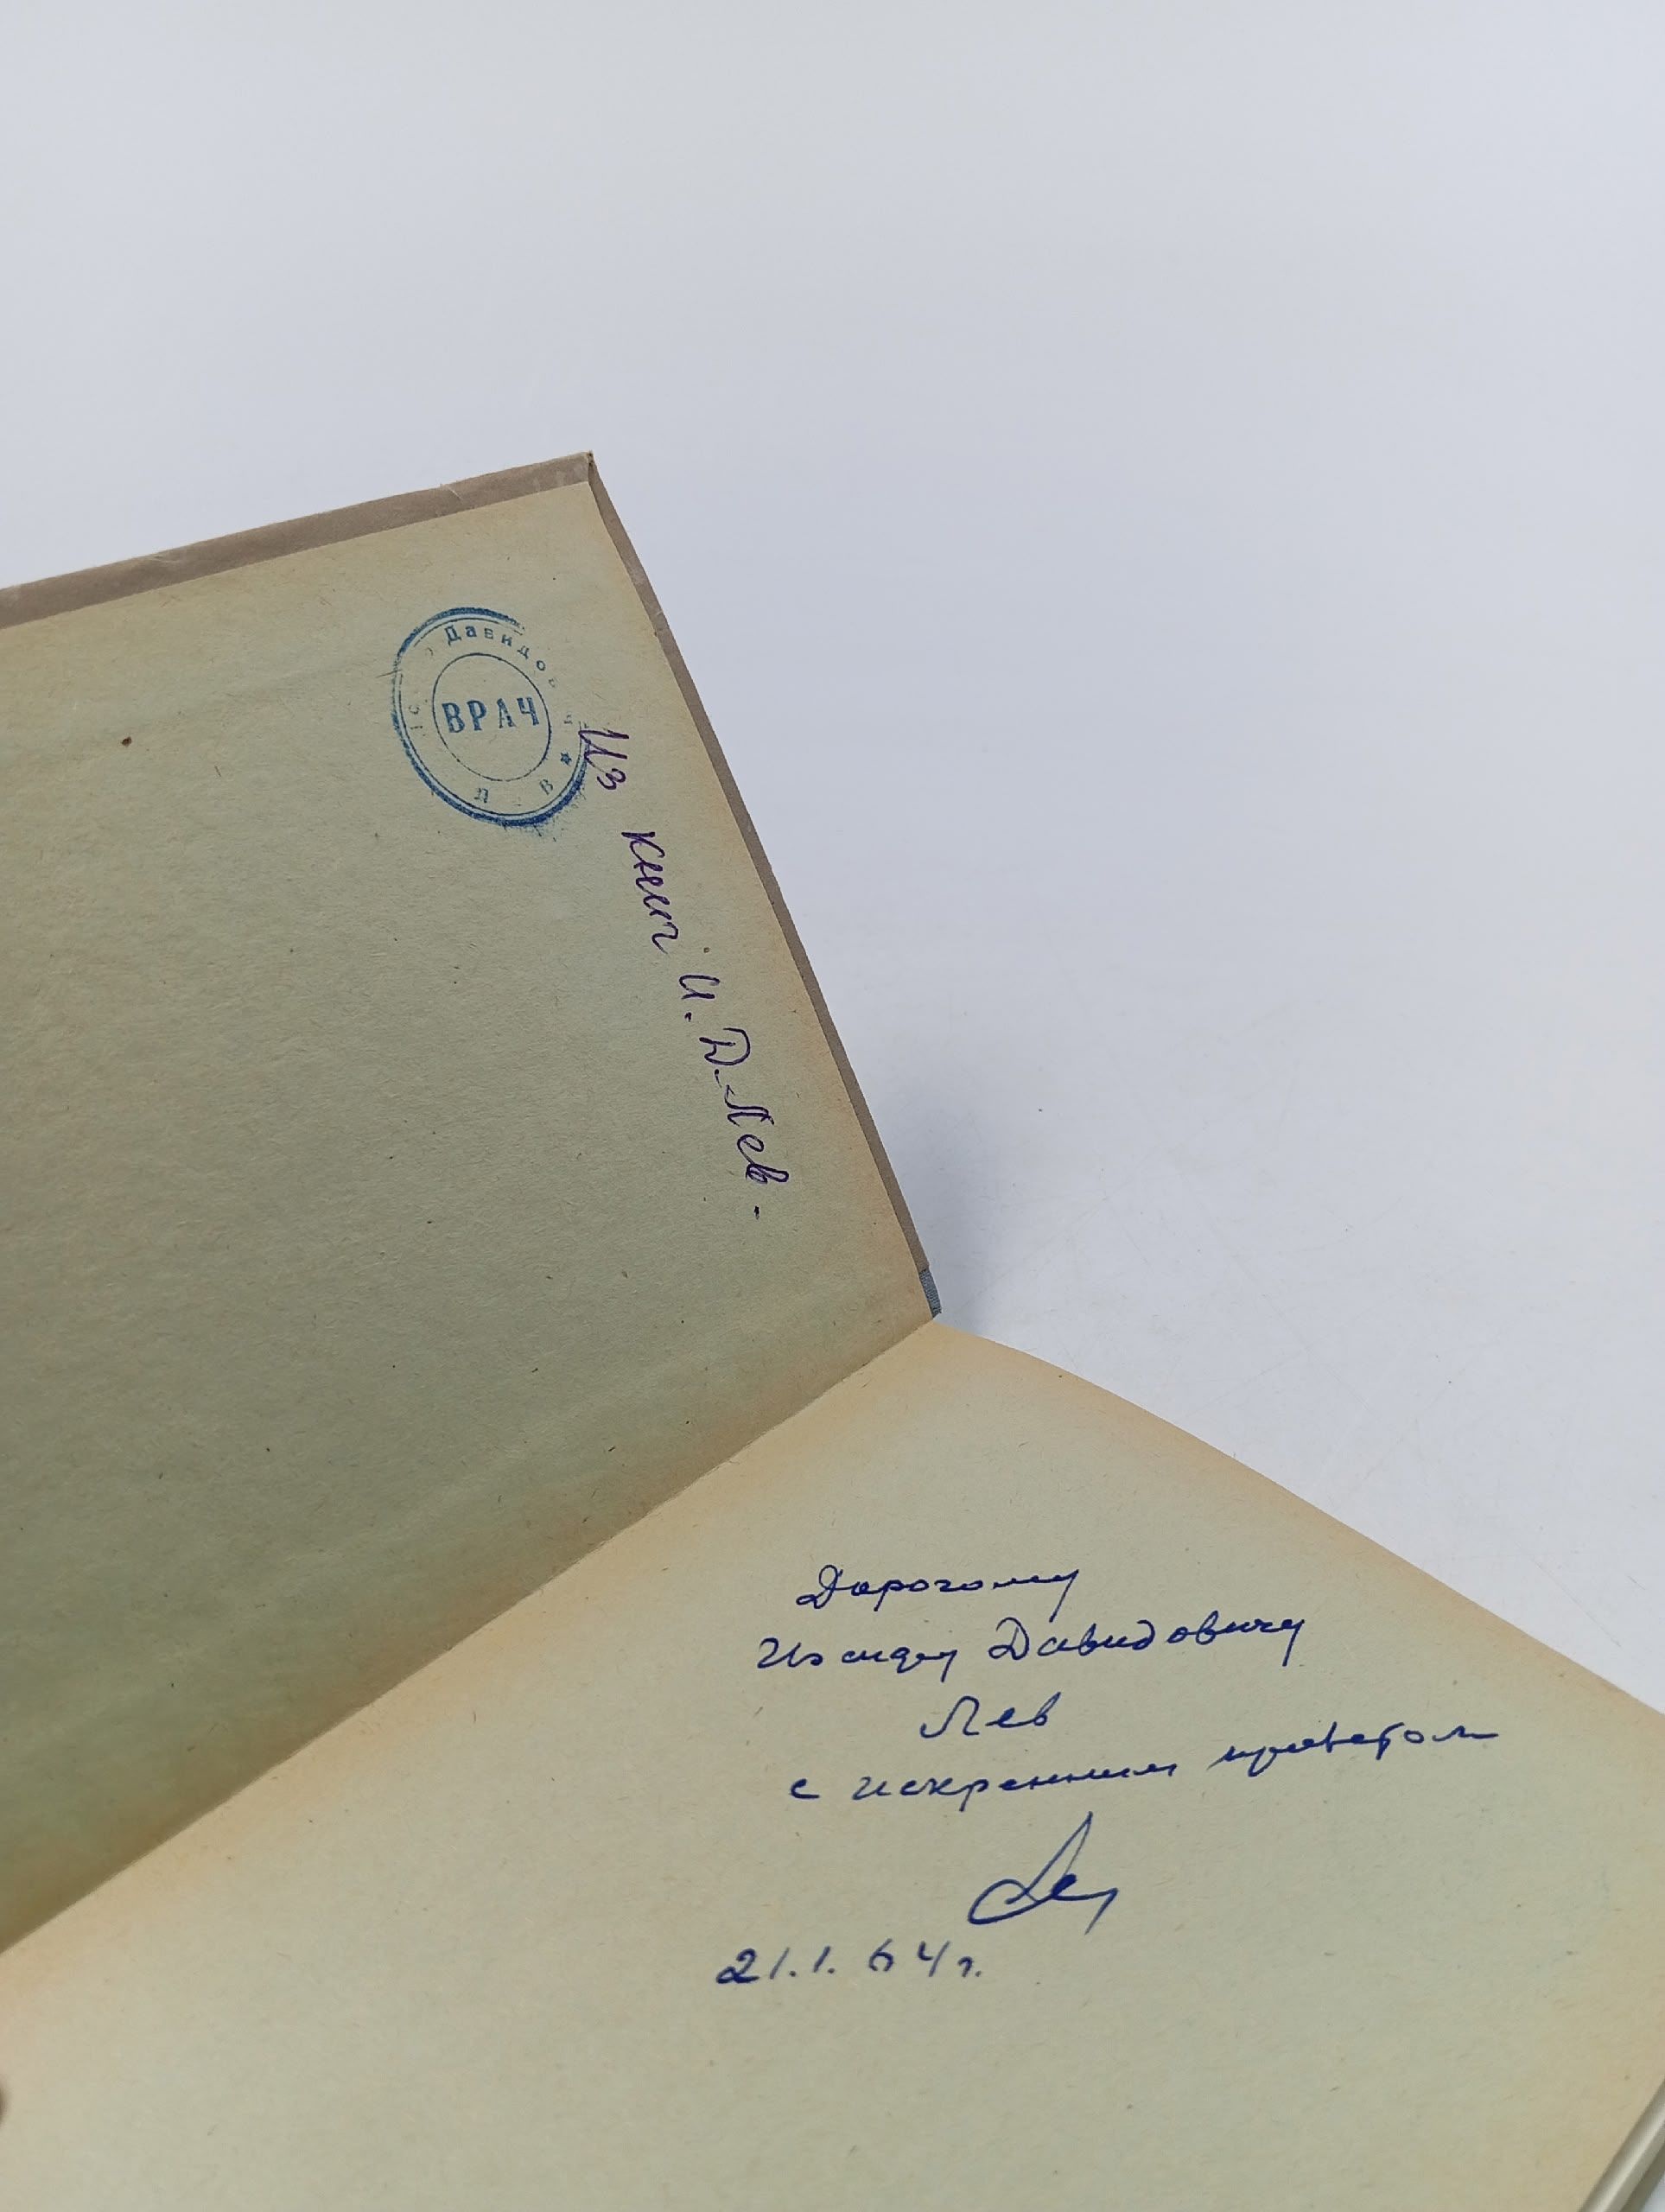 Давидов
ВРАЧ
Из книг И. Д. Лев.
Дорогому
Давидовичу
Лев
с искренним приветом
21.1.64 г.